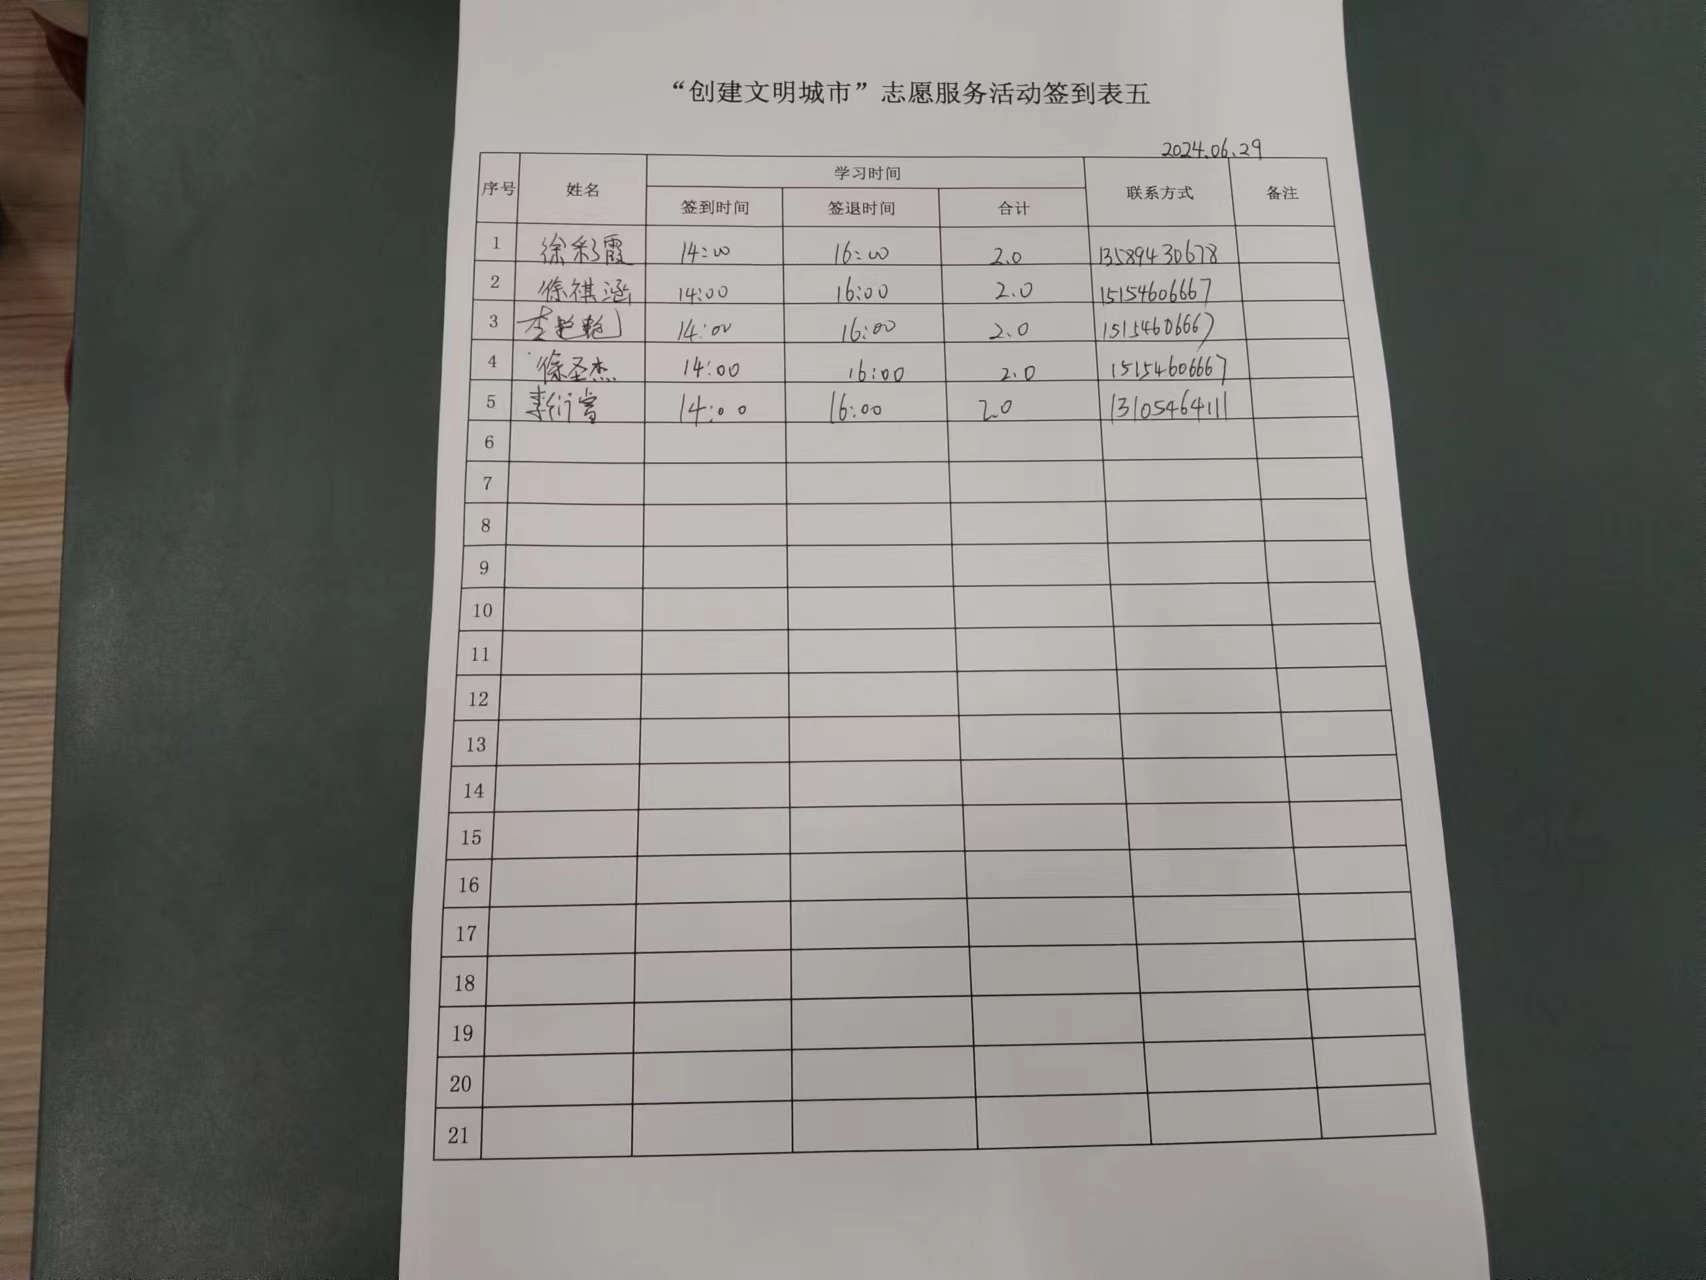 “创建文明城市”志愿服务活动签到表五
2024.06.29
序号 姓名 学习时间 联系方式 备注
签到时间 签退时间 合计
1 徐彩霞 14:00 16:00 2.0 13589430678
2 徐祺涵 14:00 16:00 2.0 15154606667
3 李艳艳 14:00 16:00 2.0 15154606667
4 徐圣杰 14:00 16:00 2.0 15154606667
5 14:00 16:00 2.0 13105464111
6
7
8
9
10
11
12
13
14
15
16
17
18
19
20
21